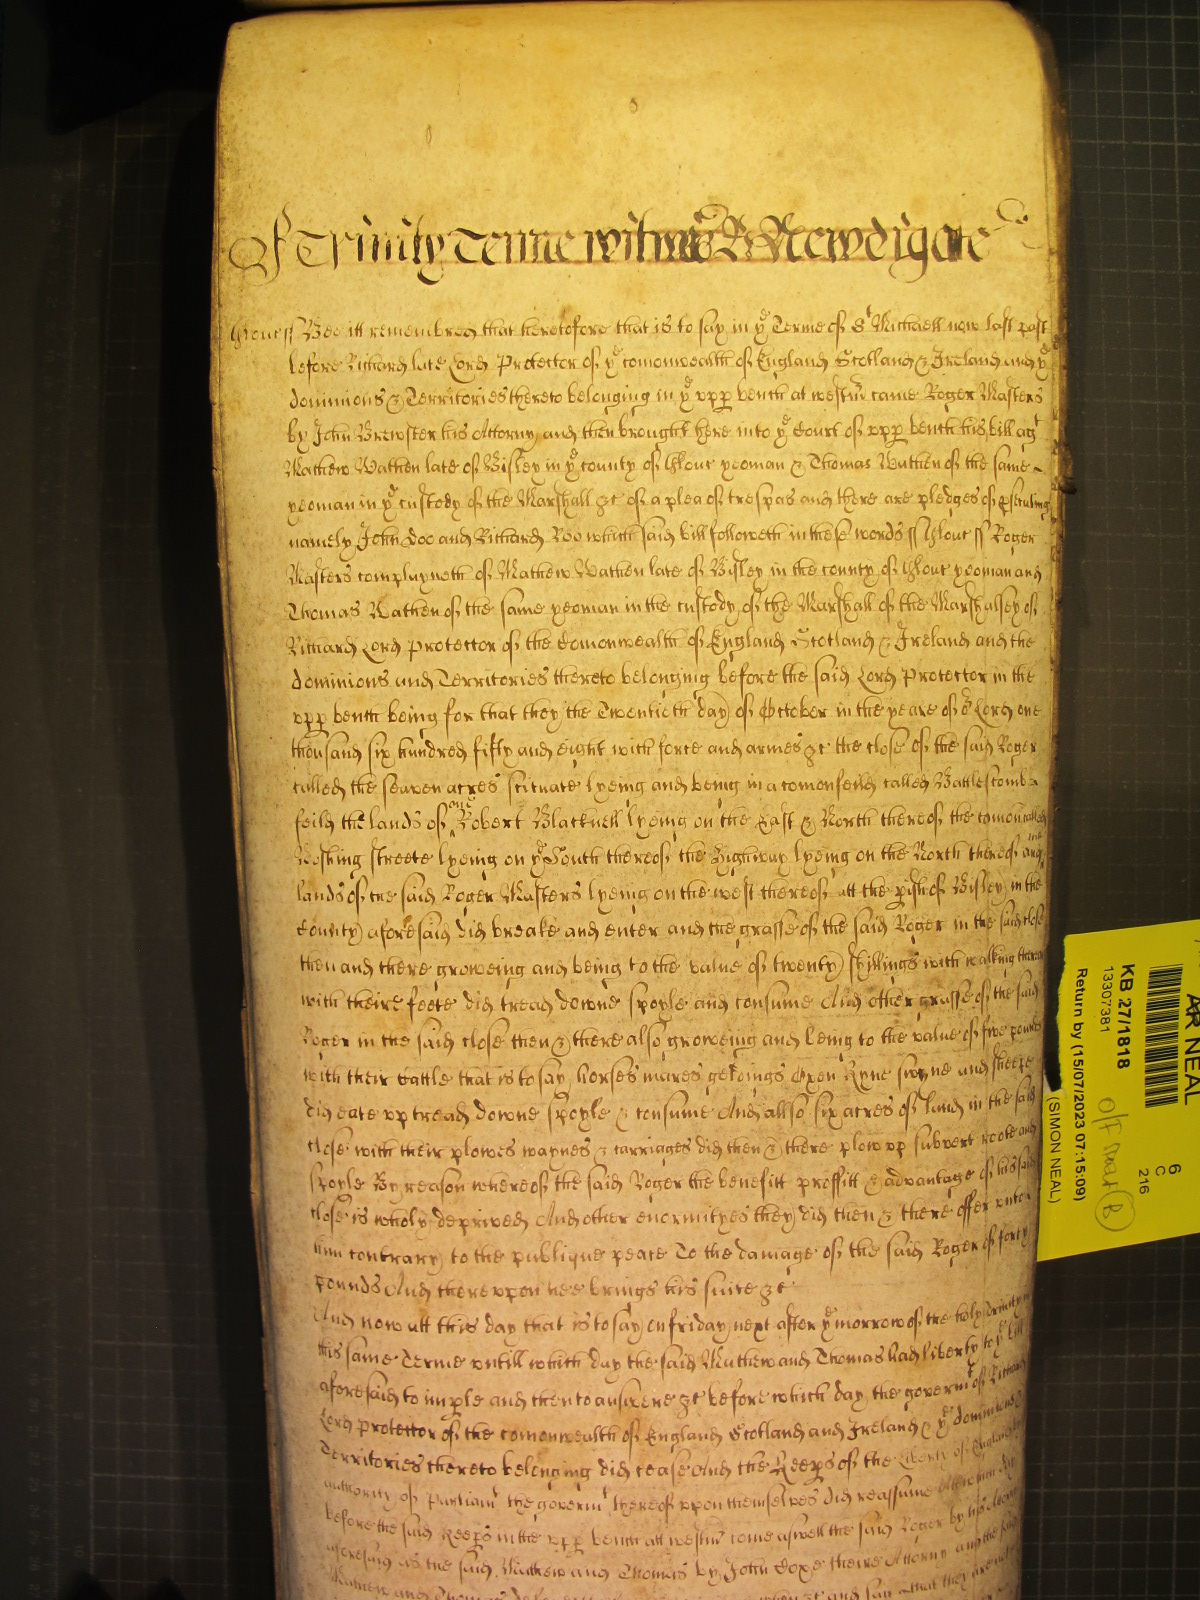 Of Trinity Terme witnes R Newdigate
Glouc ss Bee itt remembred that heretofore that is to say in ye Terme of St Michaell now last past
before Richard late Lord Protector of ye comonwealth of England Scotland & Ireland and ye
dominions & Territories thereto belonging in ye vpp bench at westmr came Roger Masters
by John Brewster his Attorny and then brought here into ye Court of vpp bench his bill agt
Mathew Wathen late of Bisley in ye county of Glouc yeoman & Thomas Wathen of the same
yeoman in ye custody of the Marshall &c of a plea of trespas and there are pledges of psecuting
namely John Doo and Richard Roo which said bill followeth in these words ss Glouc ss Roger
Masters complayneth of Mathew Wathen late of Bisley in the county of Glouc yeoman and
Thomas Wathen of the same yeoman in the custody of the Marshall of the Marshalsey of
Richard Lord Protector of the Comonwealth of England Scotland & Ireland and the
dominions and Territories thereto belonging before the said Lord Protector in the
vpp bench being for that they the Twentieth day of October in the yeare of or Lord one
thousand six hundred fifty and eight with force and armes &c the close of the said Roger
called the seaven acres scituate lyeing and being in a comonfeild called Battlescombe
feild the lands of one Robert Blackwell lyeing on the East & North thereof the comon called
streete lyeing on ye South thereof the Highway lyeing on the North thereof and the
lands of the said Roger Masters lyeing on the west thereof att the pish of Bisley in the
County aforesaid did breake and enter and the grasse of the said Roger in the said close
then and there groweing and being to the value of twenty shillings with walking there
with theire foote did tread downe spoyle and consume And other grasse of the said
Roger in the said close then & there also groweing and being to the value of five pounds
with their cattle that is to say horses mares geldings Oxen Kyne swyne and sheepe
did eate vp tread downe spoyle & consume And allso six acres of land in the said
close with their plowes waynes & carriages did then & there plow vp subvert roote and
spoyle By reason whereof the said Roger the benefitt proffitt & advantage of his said
close is wholy deprived And other enormityes they did then & there offer unto
him contrary to the publique peace To the damage of the said Roger of forty
pounds And therevpon hee brings his suite &c
And now att this day that is to say on friday next after ye morrow of the holy Trinity in
this same Terme vntill which day the said Mathew and Thomas had liberty to ye bill
aforesaid to imple and then to answere &c before which day the governmt of Richard
Lord protector of the comonwealth of England Scotland and Ireland & ye dominions &
Territories thereto belonging did cease And the Keeps of the Liberty of England by
authority of Parliamt the governmt thereof vpon themselves did reassume Att which day
before the said Keeps in the vpp bench att westmr come aswell the said Roger by his Attorny
aforesaid as the said Mathew and Thomas by John Doxe theire Attorny and the said
Mathew and Thomas &c and say that they are not
AR NEAL
6
C
216
KB 27/1818
13307381
Return by (15/07/2023 07:15:09)
(SIMON NEAL)